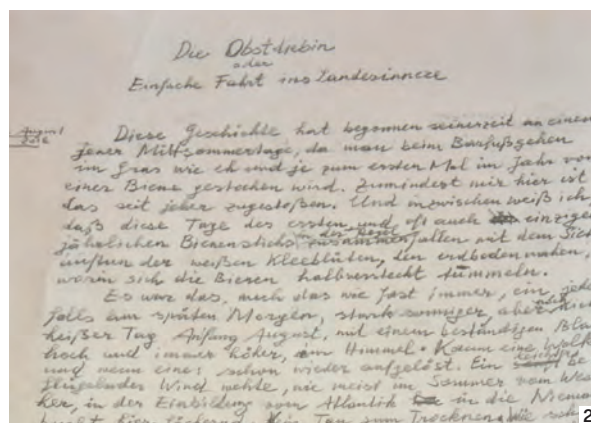 Die Obstdiebin
oder
Einfache Fahrt ins Landesinnere
August
2016
Diese Geschichte hat begonnen seinerzeit an einem
jener Mittsommertage, da man beim Barfußgehen
im Gras wie eh und je zum ersten Mal im Jahr von
einer Biene gestochen wird. Zumindest mir hier ist
das seit jeher zugestoßen. Und inzwischen weiß ich,
daß diese Tage des ersten und oft auch einzigen
jährlichen Bienenstichs in der Regel zusammenfallen mit dem Sich-
öffnen der weißen Kleeblüten, den erdbodennahen,
worin sich die Bienen halbversteckt tummeln.
Es war das, auch das wie fast immer, ein, jeden-
falls am späten Morgen, stark sonniger, aber noch nicht
heißer Tag Anfang August, mit einem beständigen Blau
hoch und immer höher, am Himmel. Kaum eine Wolke
und wenn eine: schon wieder aufgelöst. Ein leichter be-
flügelnder Wind wehte, wie meist im Sommer vom Wes-
her, in der Einbildung vom Atlantik in die Niemands
Kein Tau zum Trocknen. Wie
2